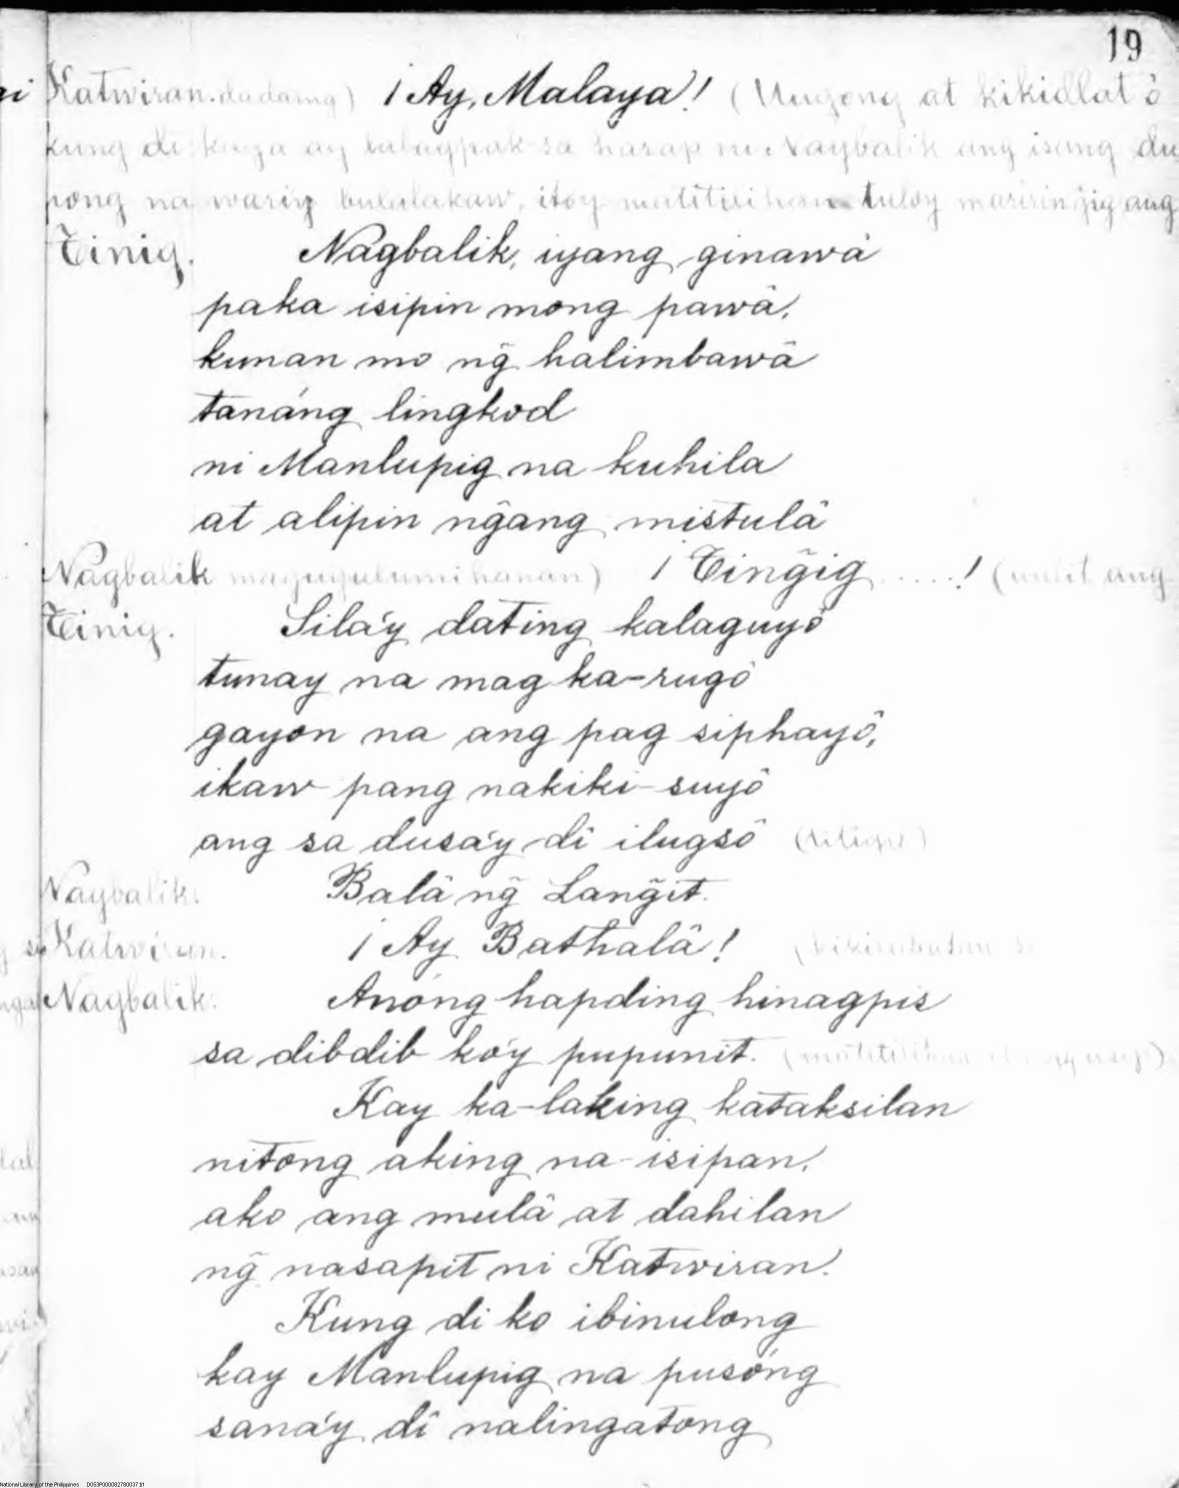 19
Katwiran. dadaing) ¡Ay, Malaya! (Uugong at kikidlat ó
kung di kaya ay babagpak sa harap ni Nagbalik ang isang du
pong na wari'y bulalakaw, ito'y matitilihan tuloy maririnjig ang
Tinig. Nagbalik, iyang ginawâ
paka isipin mong pawâ,
kunan mo ng̃ halimbawâ
tanáng lingkod
ni Manlupig na kuhila
at alipin ng̃ang mistulâ
Nagbalik maguguluminanan) ¡Ting̃ig.....! (uulit ang
Tinig. Sila'y dating kalaguyô
tunay na mag ka-rugô
gayon na ang pag siphayô,
ikaw pang nakiki-suyô
ang sa dusa'y di ilugsô
Nagbalik. Balâ ng̃ Lang̃it.
Katwiran. ¡Ay Bathalâ!
Nagbalik. Anóng hapding hinagpis
sa dibdib ko'y pupunit.
Kay ka-laking kataksilan
nitong aking na-isipan,
ako ang mulâ at dahilan
ng̃ nasapit ni Katwiran.
Kung di ko ibinulong
kay Manlupig na pusóng
sana'y dî nalingatong
National Library of the Philippines